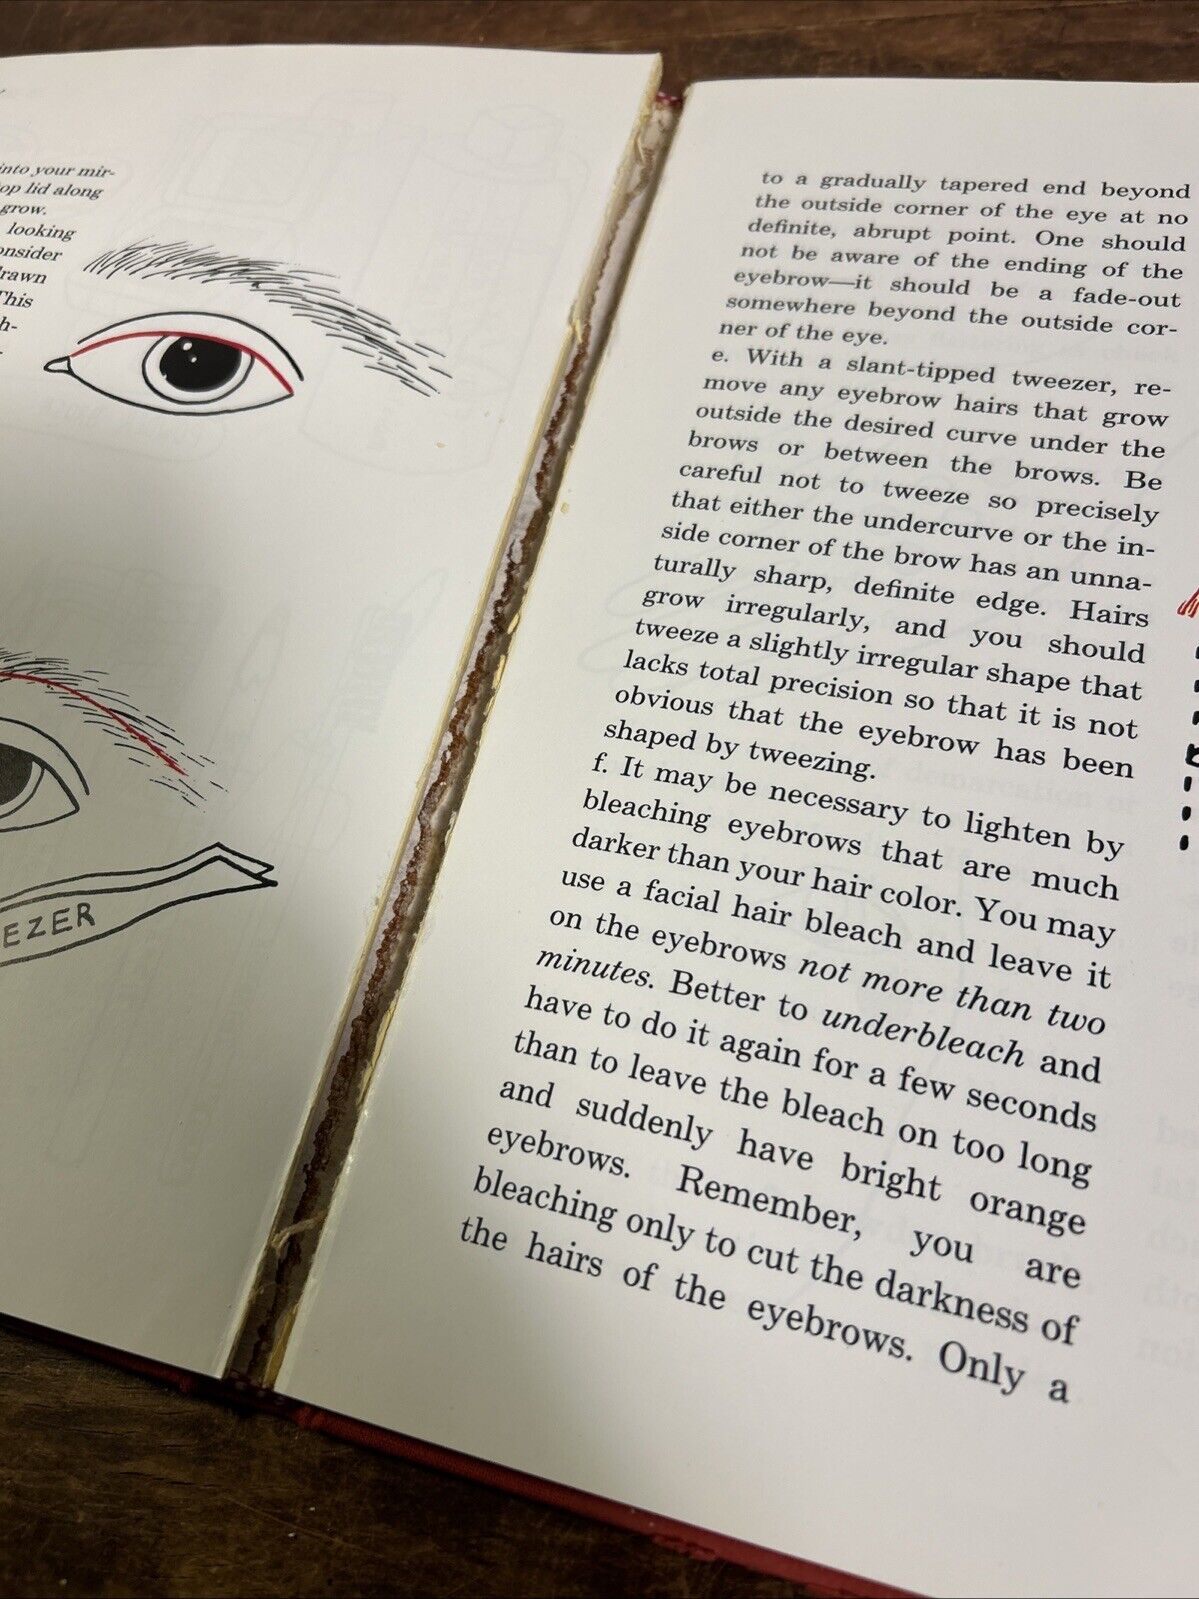 into your mir-
op lid along
grow.
looking
onsider
drawn
This
h-
EZER
to a gradually tapered end beyond
the outside corner of the eye at no
definite, abrupt point. One should
not be aware of the ending of the
eyebrow—it should be a fade-out
somewhere beyond the outside cor-
ner of the eye.
e. With a slant-tipped tweezer, re-
move any eyebrow hairs that grow
outside the desired curve under the
brows or between the brows. Be
careful not to tweeze so precisely
that either the undercurve or the in-
side corner of the brow has an unna-
turally sharp, definite edge. Hairs
grow irregularly, and you should
tweeze a slightly irregular shape that
lacks total precision so that it is not
obvious that the eyebrow has been
shaped by tweezing.
f. It may be necessary to lighten by
bleaching eyebrows that are much
darker than your hair color. You may
use a facial hair bleach and leave it
on the eyebrows not more than two
minutes. Better to underbleach and
have to do it again for a few seconds
than to leave the bleach on too long
and suddenly have bright orange
eyebrows. Remember, you are
bleaching only to cut the darkness of
the hairs of the eyebrows. Only a